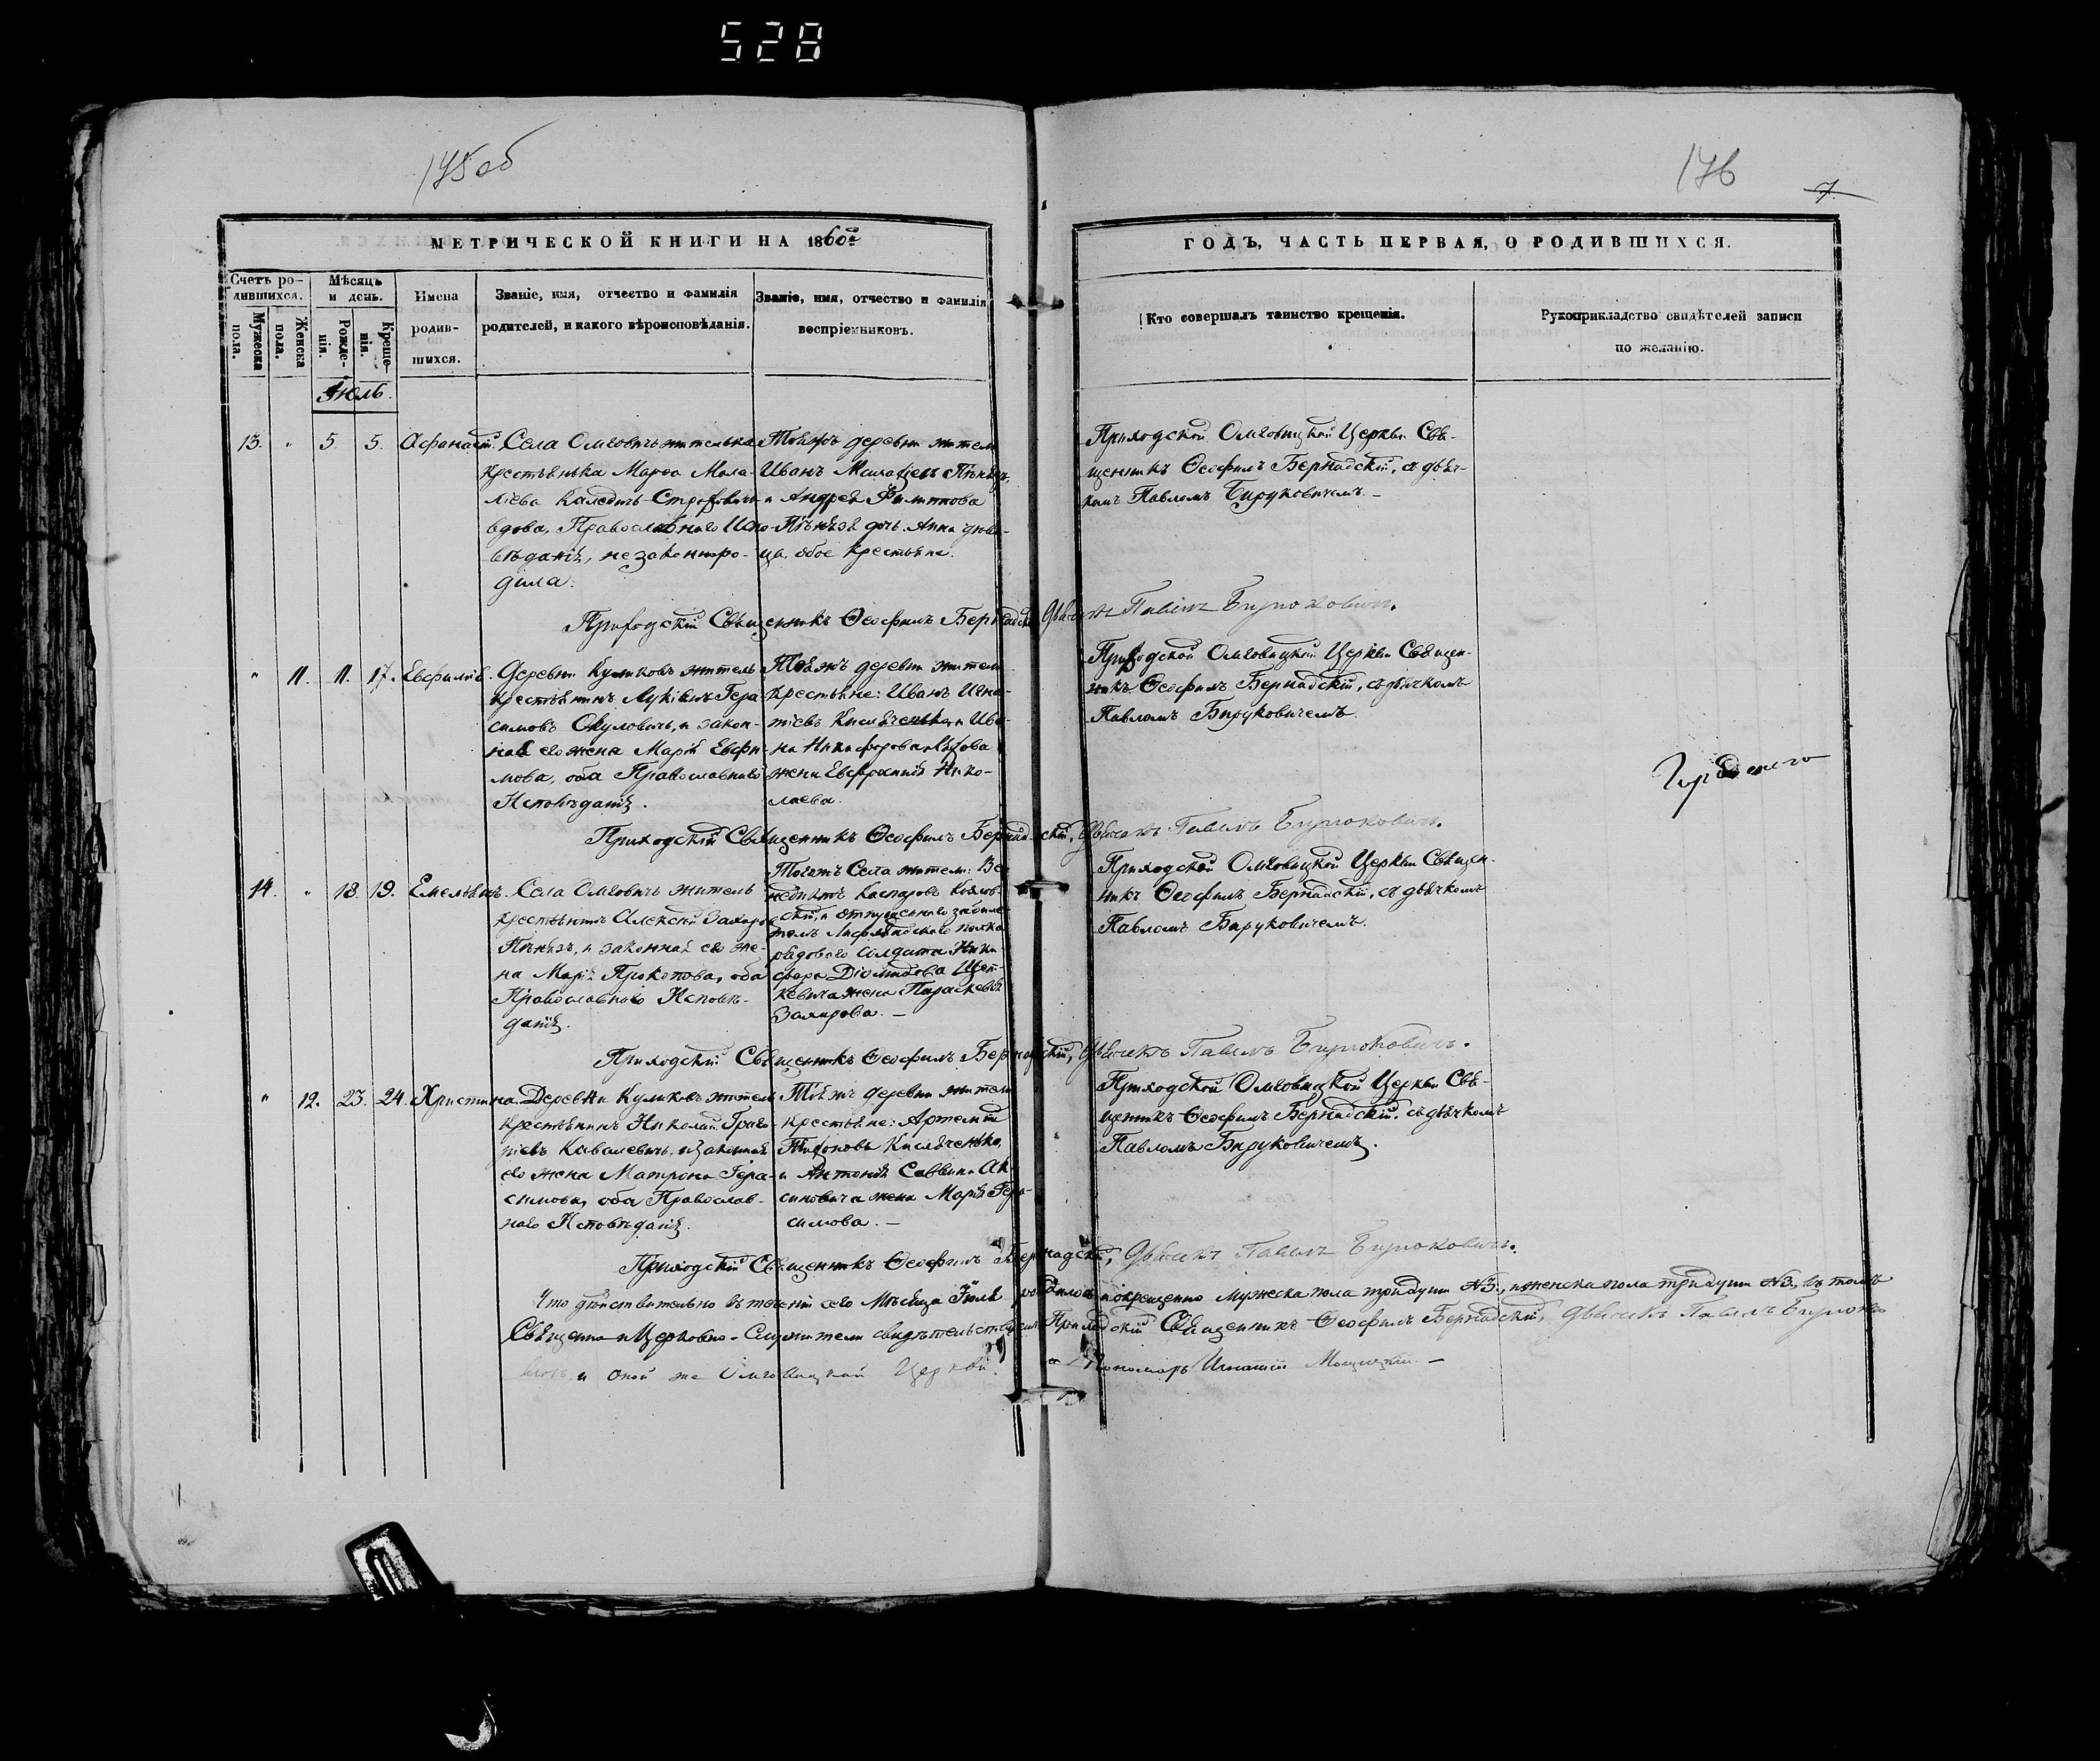 528
175 об
176
7
МЕТРИЧЕСКОЙ КНИГИ НА 1860й
ГОДЪ, ЧАСТЬ ПЕРВАЯ, О РОДИВШИХСЯ.
Счетъ ро-
дившихся.
Мужеска
пола.
Женска
пола.
Мѣсяцъ
и день.
Рожде-
нія.
Креще-
нія.
Имена
родив-
шихся.
Званіе, имя, отчество и фамилія
родителей, и какого вѣроисповѣданія.
Званіе, имя, отчество и фамилія
воспріемниковъ.
Кто совершалъ таинство крещенія.
Рукоприкладство свидѣтелей записи
по желанію.
Іюль.
13. " 5. 5. Афанасій.
Села Омговичъ жителька
крестьянка Марѳа
вдова, Православнаго Испо-
вѣданія, незаконноро-
дила.
Тойжъ деревни жители
Иванъ
и Андрея Филиппова
дочь Анна
обое крестьяне.
Приходской Омговицкой Церкви Свя-
щенникъ Ѳеофилъ Бернадскій, съ дьяч-
комъ Павломъ Бируковичемъ. –
Приходскій Священникъ Ѳеофилъ Бернадскій, Дьячекъ Павелъ Бирюковичъ.
" 11. 11. 17. Евфимія.
Деревни Куликовъ житель
крестьянинъ Лукіянъ Гера-
симовъ Окуловичъ, и закон-
ная его жена Марія Евфи-
мова, оба Православнаго
Исповѣданія.
Тойжъ деревни жители
крестьяне: Иванъ Игна-
тіевъ Кисляченько, и Ива-
на Никифорова
жена Евфросинія Нико-
лаева.
Приходской Омговицкой Церкви Священ-
никъ Ѳеофилъ Бернадскій, съ дьячкомъ
Павломъ Бируковичемъ.
Приходскій Священникъ Ѳеофилъ Бернадскій, Дьячекъ Павелъ Бирюковичъ.
14. " 18. 19. Емельянъ.
Села Омговичъ житель
крестьянинъ Алексѣй Захаровъ
Пѣнязь, и законная его же-
на Марія Прокопова, оба
Православнаго Исповѣ-
данія.
Тогожъ Села жители: Ве-
недиктъ Каспаровъ Козлов-
скій, и отпущеннаго за биле-
томъ полка
рядоваго солдата Ники-
фора Діомидова
жена Параскевія
Захарова. –
Приходской Омговицкой Церкви Священ-
никъ Ѳеофилъ Бернадскій, съ дьячкомъ
Павломъ Бируковичемъ.
Приходскій Священникъ Ѳеофилъ Бернадскій, Дьячекъ Павелъ Бирюковичъ.
" 12. 23. 24. Христина.
Деревни Куликовъ житель
крестьянинъ Николай
Ковалевичъ, и законная
его жена Матрона Гера-
симова, оба Православ-
наго Исповѣданія.
Тойжъ деревни жители
крестьяне: Артемій
Тихоновъ Кисляченько,
и Антонія Саввина Ак-
синовича жена Марія Гера-
симова. –
Приходской Омговицкой Церкви Свя-
щенникъ Ѳеофилъ Бернадскій, съ дьячкомъ
Павломъ Бируковичемъ.
Приходскій Священникъ Ѳеофилъ Бернадскій, Дьячекъ Павелъ Бирюковичъ.
Что дѣйствительно въ теченіи сего Мѣсяца Іюля родилось и окрещенно мужеска пола три души №3., и женска пола три души №3. въ томъ
Священно и Церковно-Служители свидѣтельствуемъ Приходскій Священникъ Ѳеофилъ Бернадскій, Дьячекъ Павелъ Бирюко-
вичъ, и оной же Омговицкой Церкви Пономарь Игнатій –